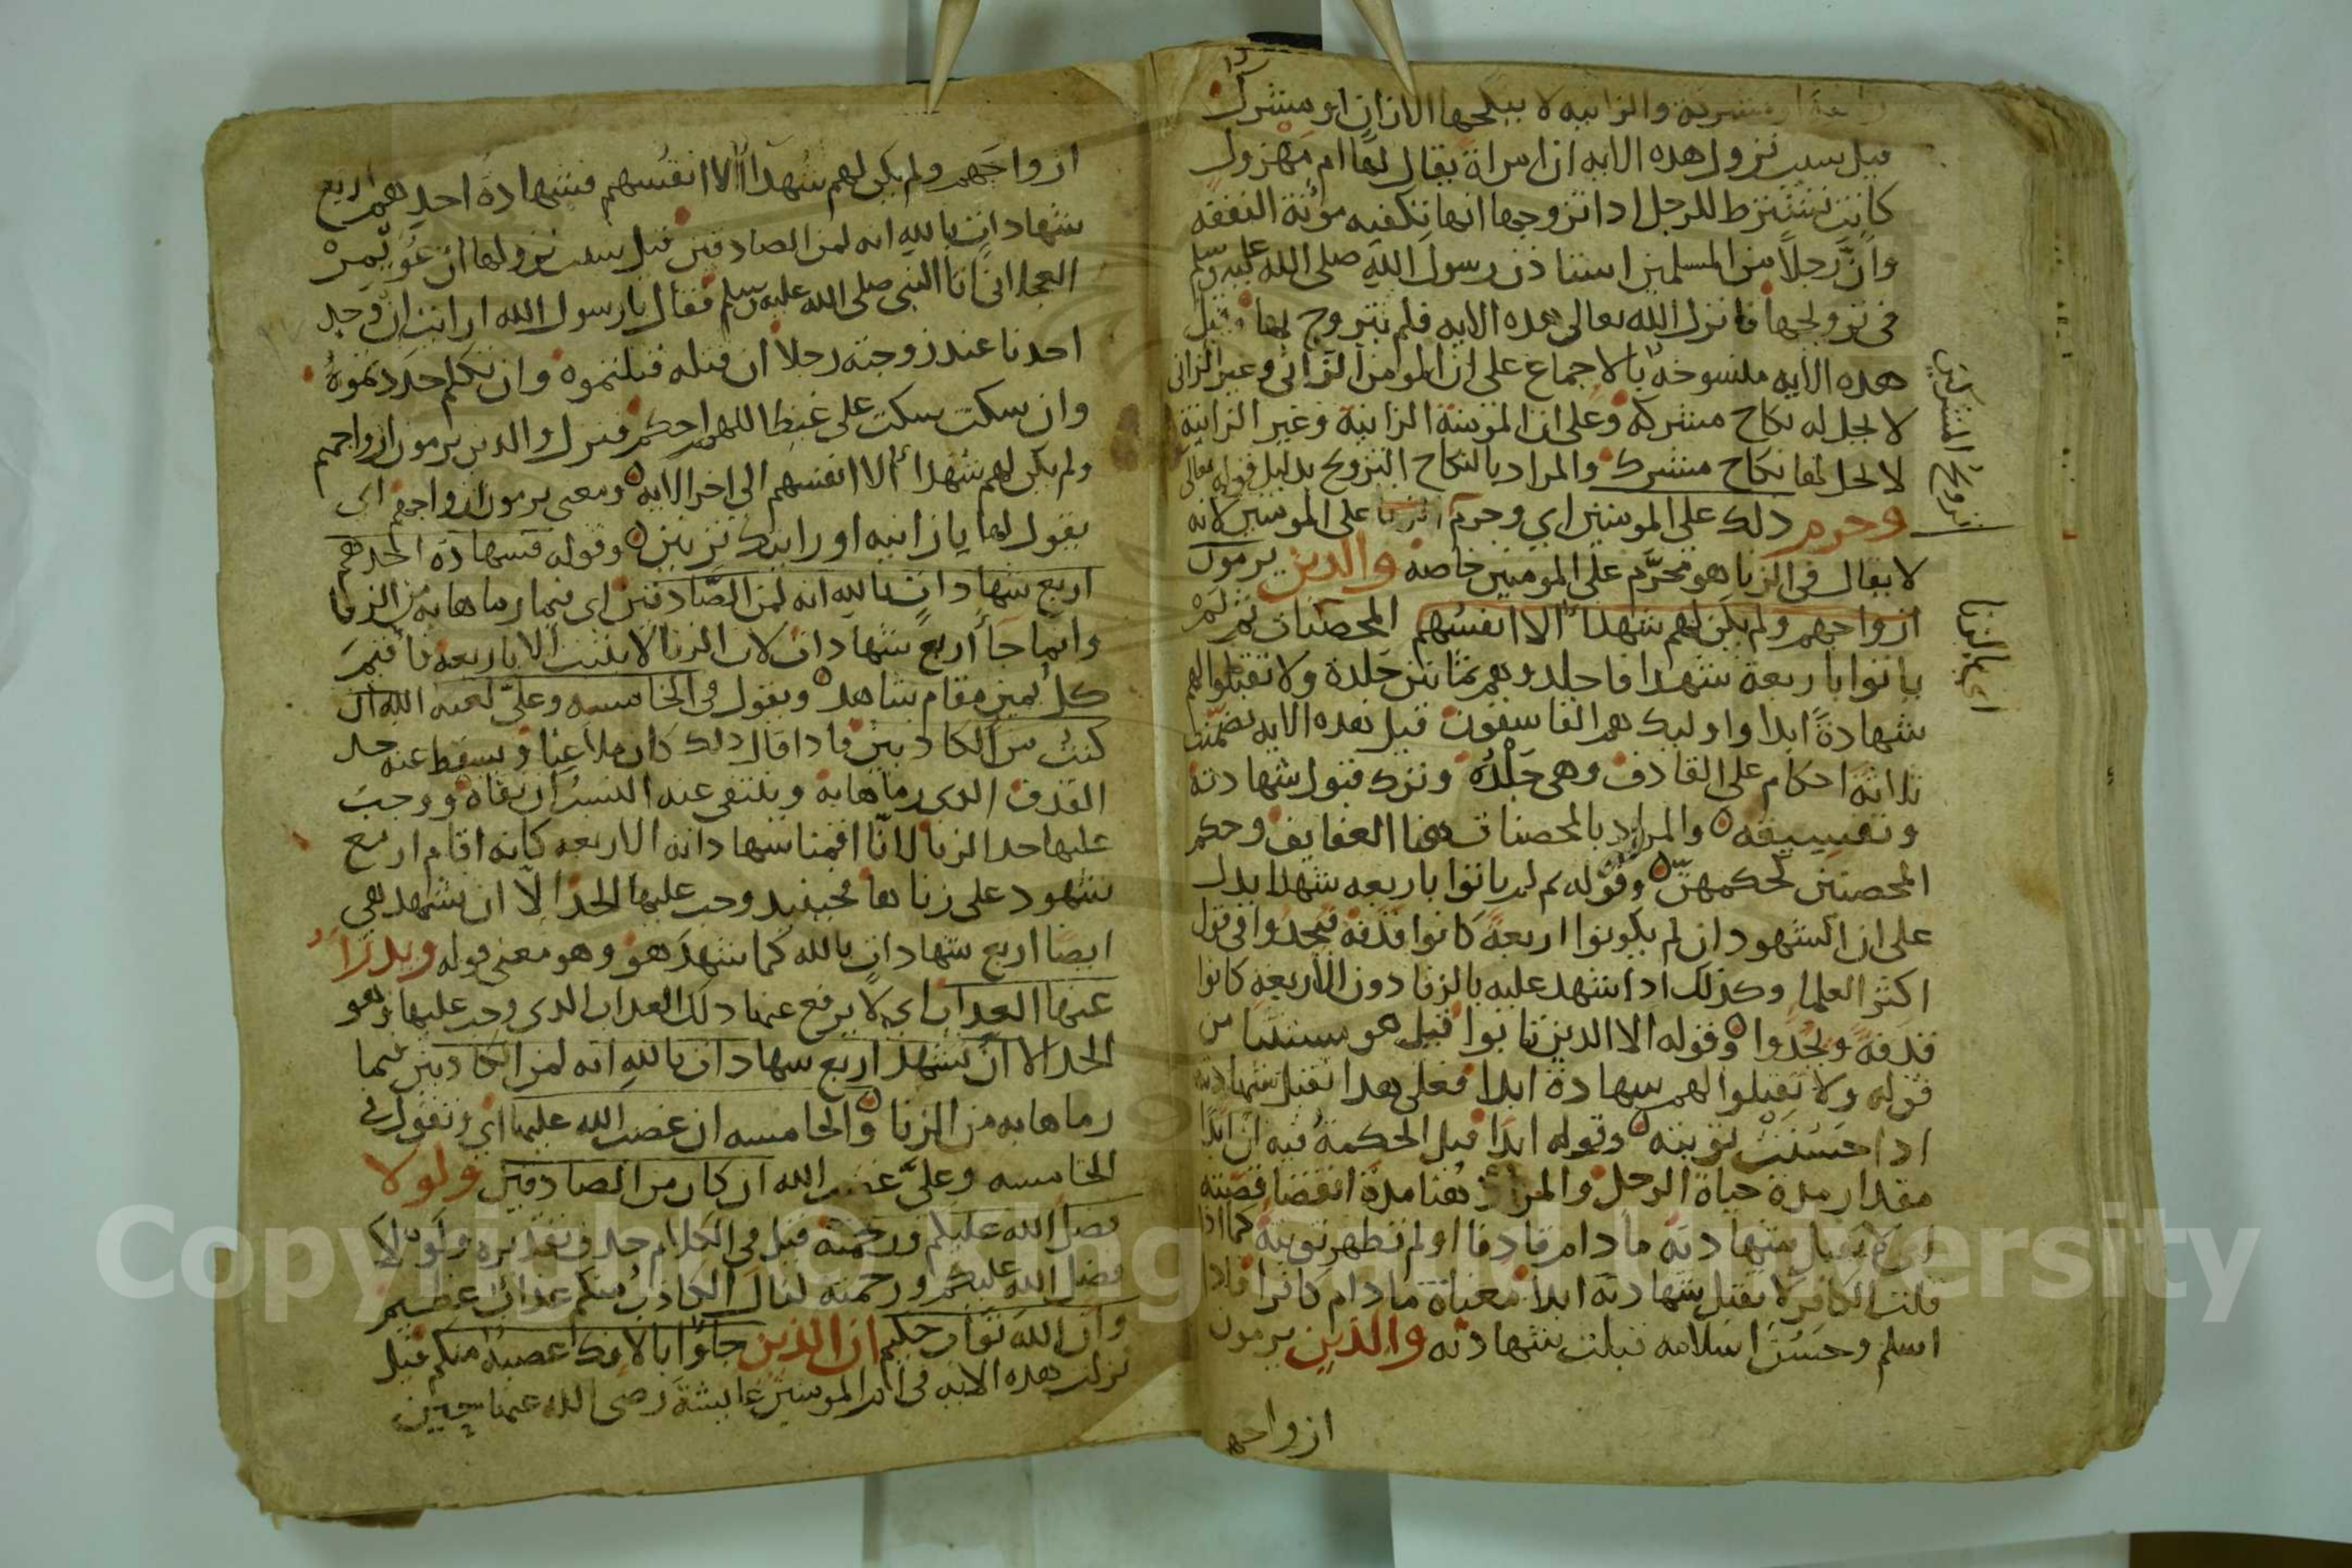 زانية او مشركة والزانيه لا ينكحها الا زان او مشرك
قيل سبب نزول هده الايه ان امراة يقال لها ام مهزول
كانت تشترط للرجل ادا تزوجها انها تكفيه مؤنة النفقه
وانّ رجلاً من المسلمين استاذن رسول الله صلى الله عليه وسلم
فى تزويجها فانزل الله تعالى هده الايه فلم يتزوج بها وقيل
هده الايه منسوخة بالاجماع على ان المومن الزانى وغير الزانى
لا يحل له نكاح مشركه وعلى ان المؤمنة الزانية وغير الزانية
لا يحل لها نكاح مشرك والمراد بالنكاح التزويج بدليل قوله تعالى
وحرم دلك على المومنين اي وحرم الزنا على المومنين لانه
لا يقال فى الزنا هو محرّم على المومنين خاصه والدين يرمون
ازواجهم ولم يكن لهم شهدا الا انفسهم المحصنات ثم لمْ
ياتوا باربعة شهدا فاجلدوهم ثمانين جلدة ولا تقبلوا لهم
شهادةً ابدا واوليك هم الفاسقون قيل هده الايه تضمّنت
ثلاثة احكام على القادف وهى جَلْدُه وترك قبول شهادته
وتفسيقه والمراد بالمحصنات هنا العفايف وحكم
المحصنين كحكمهنّ وقوله ثم لم ياتوا باربعه شهدا يدل
على ان الشهود ان لم يكونوا اربعة كانوا قذفه فيحدوا فى قول
اكثر العلما وكذلك اذا شهد عليه بالزنا دون الاربعه كانوا
قذفة ويُحدّوا وقوله الا الدين تابوا قيل هو مستثنا من
قوله ولا تقبلوا لهم شهادة ابدا فعلى هدا تقبل شهادته
ادا حسُنَتْ توبته وقوله ابدا قيل الحكمة فيه ان ابدا
مقدار مدة حياة الرجل والمراد هنا مدة انقضا قصته
اى لا تقبل شهادته ما دام قادفا او لم تظهر توبته كما اذا
قلت الكافر لا تقبل شهادته ابدا معناه ما دام كافرا فاذا
اسلم وحَسُنَ اسلامه قبلت شهادته والذين يرمون
ازواجهم
تزويج المشركين
احكام الزنا
ازواجَهم ولم يكن لهم شُهدآءُ الا انفُسُهم فشهادةُ احدِهم اربع
شهاداتٍ بالله انه لمن الصادقين قيل سبب نزولها ان عُوَيْمِرْ
العجلانى اتا النبى صلى الله عليه وسلم فقال يا رسول الله ارايت ان وجد
احدنا عند زوجته رجلا ان قتله قتلتموه وان تكلم جلدتموهُ
وان سكت سكت على غيظ اللهم احكم فنزل والدين يرمون ازواجهم
ولم يكن لهم شهدآء الا انفسهم الى اخر الايه ومعنى يرمون ازواجهم اي
يقول لها يا زانيه او رايتك تزنين وقوله فشهادة احدهم
اربع شهاداتٍ بالله انه لمن الصّادقين اى فيما رماها به من الزنا
وانما جآ اربع شهادات لان الزنا لا يثبت الا باربعه فاقيمَ
كل يمين مقام شاهد ويقول فى الخامسه وعلىّ لعنه الله ان
كنتُ من الكادبين فادا قال دلك كان ملاعنا ويسقط عنه حد
القذف الدى رماها به وينتفى عنه النسبُ ان نفاه ووجبَ
عليها حد الزنا لانّا اقمنا شهاداته الاربعه كانه اقام اربع
شهود على زناها فحينيد وجب عليها الحد الّا ان تشهد هي
ايضا اربع شهادات بالله كما شهدَ هو وهو معنى قوله ويدرَاُ
عنها العداب اي لا يرفع عنها دلك العداب الدى وجب عليها وهو
الحد الا ان تشهد اربع شهادات بالله انه لمن الكادبين فيما
رماها به من الزنا والخامسه ان غضب الله عليها اي وتقول فى
الخامسه وعلىَّ غضب الله ان كان من الصادقين ولولا
فضل الله عليكم ورحمته قيل فى الكلام حدف تقديره ولولا
فضل الله عليكم ورحمته لنال الكاذب منكم عذابٌ عظيم
وان الله تواب حكيم ان الذين جآوا بالافك عصبة منكم قيل
نزلت هده الايه فى ام المومنين عايشة رضى الله عنها حين
Copyright © King Saud University